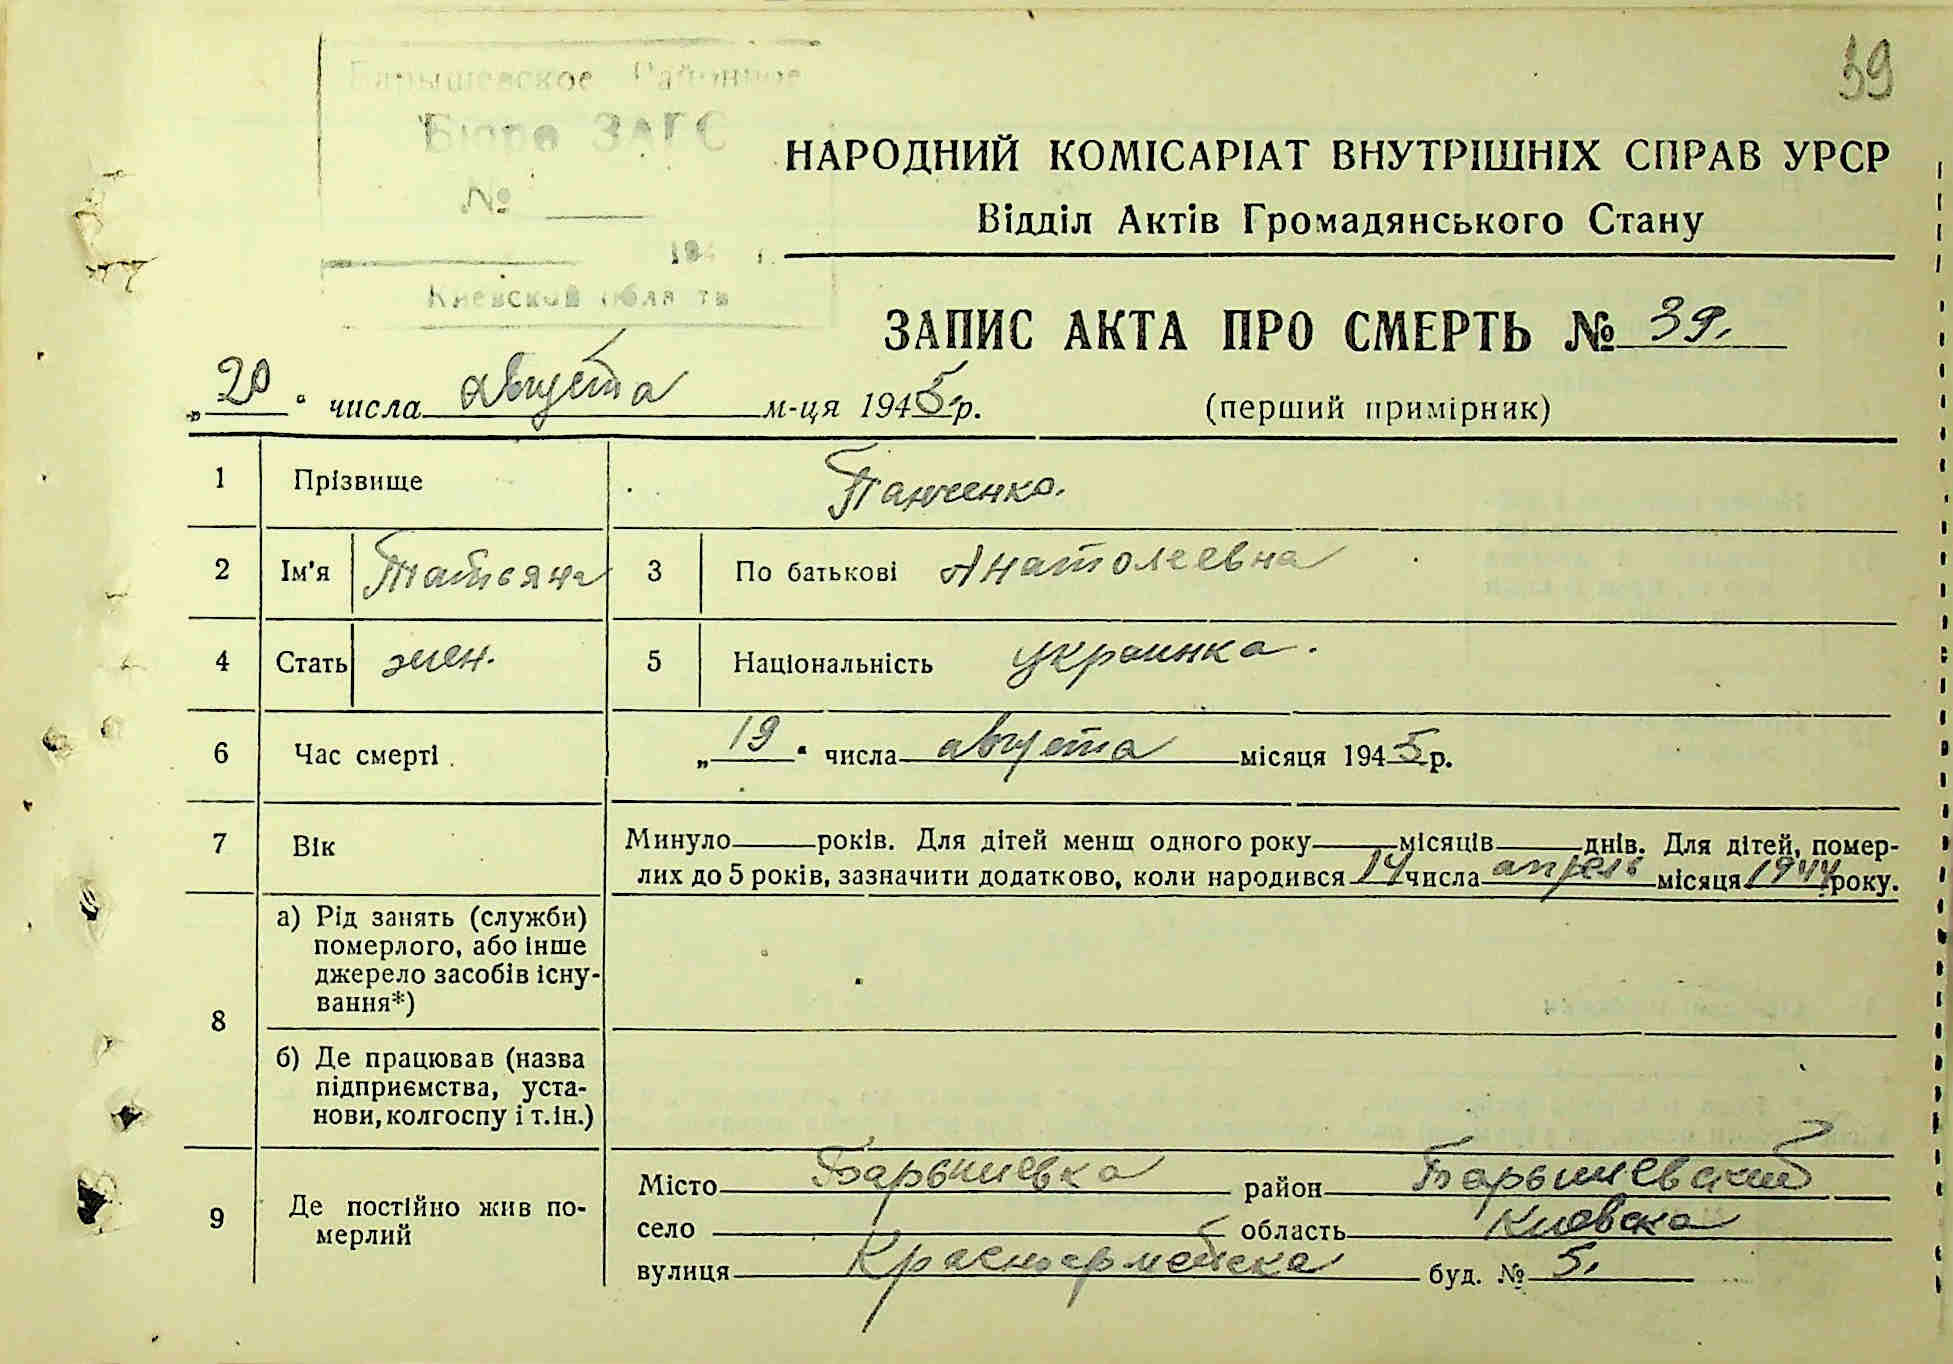 39
Барышевское Районное
Бюро ЗАГС
№
194 г.
Киевской области
НАРОДНИЙ КОМІСАРІАТ ВНУТРІШНІХ СПРАВ УРСР
Відділ Актів Громадянського Стану
ЗАПИС АКТА ПРО СМЕРТЬ № 39.
„20“ числа августа м-ця 1945 р.
(перший примірник)
1 Прізвище Панченко.
2 Ім'я Татьяна 3 По батькові Анатолеевна
4 Стать жен. 5 Національність украинка.
6 Час смерті „19“ числа августа місяця 1945 р.
7 Вік Минуло років. Для дітей менш одного року місяців днів. Для дітей, помер-
лих до 5 років, зазначити додатково, коли народився 14 числа апрель місяця 1944 року.
8 а) Рід занять (служби)
померлого, або інше
джерело засобів існу-
вання*)
б) Де працював (назва
підприємства, уста-
нови, колгоспу і т. ін.)
9 Де постійно жив по-
мерлий
Місто Барышевка район Барышевский
село область Киевска
вулиця Красноармейска буд. № 5.